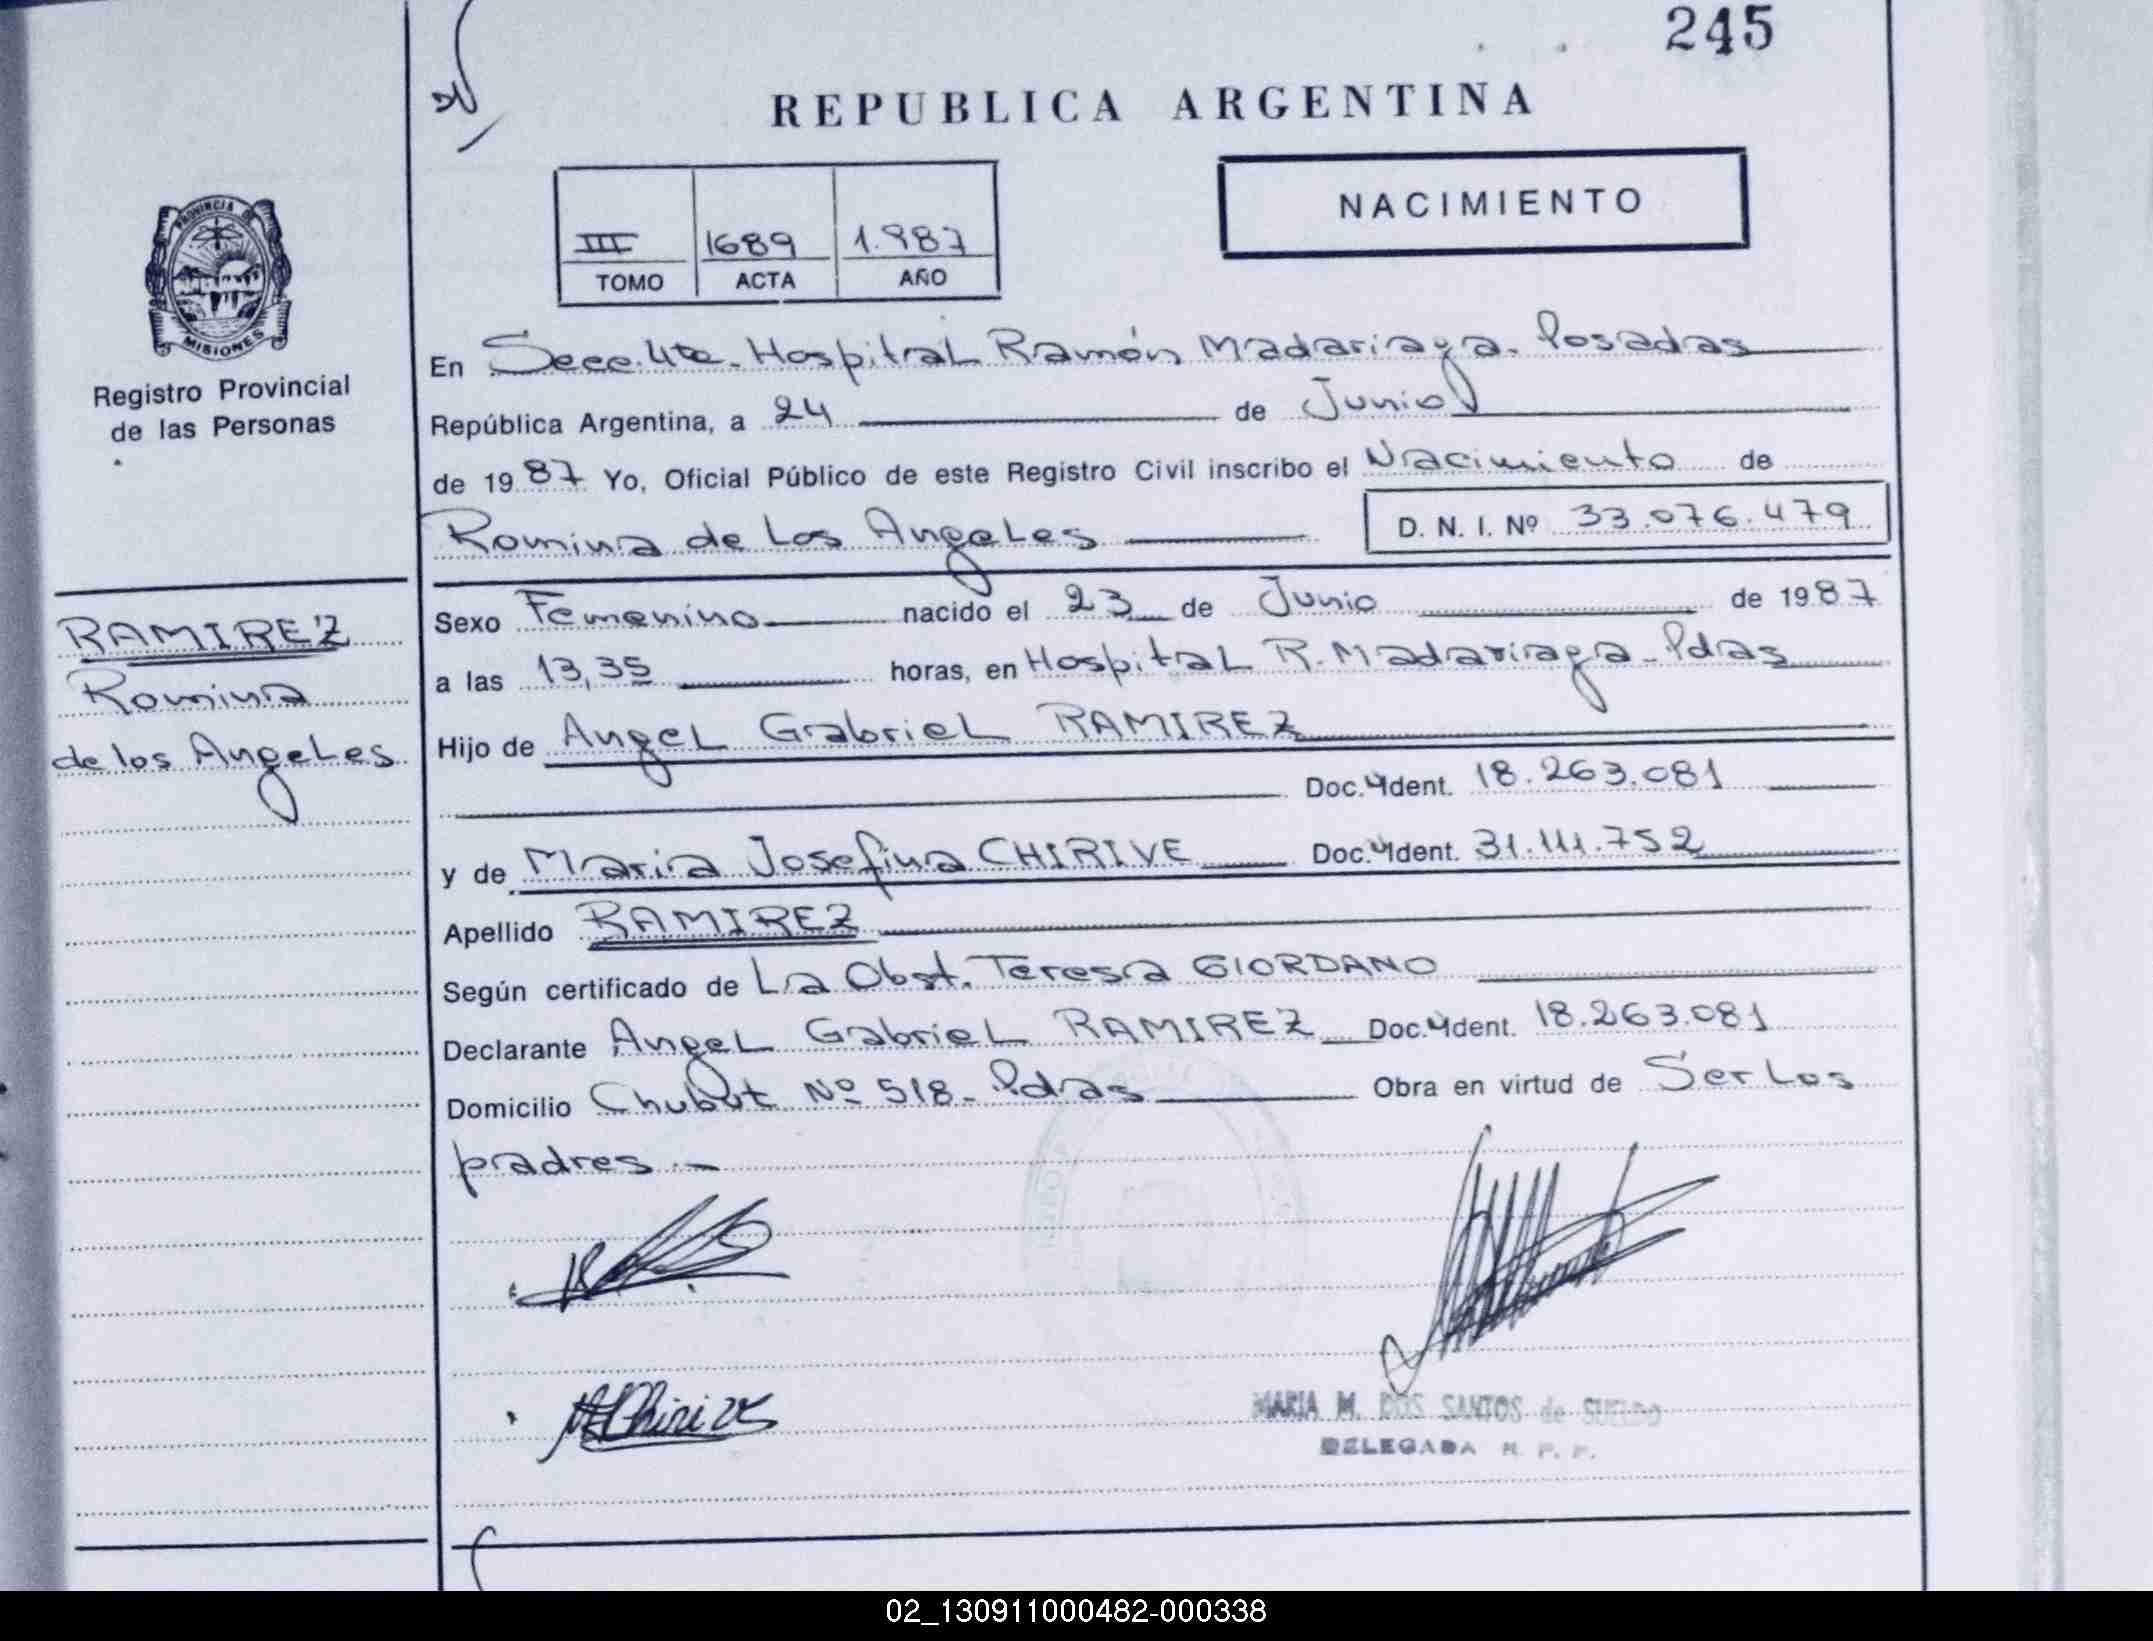 245
REPUBLICA ARGENTINA
NACIMIENTO
III 1689 1.987
TOMO ACTA AÑO
PROVINCIA DE
MISIONES
Registro Provincial
de las Personas
RAMIREZ
Romina
de los Angeles
En Secc. 4ta. Hospital Ramón Madariaga. Posadas
República Argentina, a 24 de Junio
de 1987 Yo, Oficial Público de este Registro Civil inscribo el Nacimiento de
Romina de Los Angeles D. N. I. Nº 33.076.479
Sexo Femenino nacido el 23 de Junio de 1987
a las 13,35 horas, en Hospital R. Madariaga - Pdas
Hijo de Angel Gabriel RAMIREZ
Doc. Ident. 18.263.081
y de Maria Josefina CHIRIVE Doc. Ident. 31.111.752
Apellido RAMIREZ
Según certificado de La Obst. Teresa GIORDANO
Declarante Angel Gabriel RAMIREZ Doc. Ident. 18.263.081
Domicilio Chubut Nº 518 - Pdas Obra en virtud de Ser Los
padres.-
MARIA M. DOS SANTOS de SUELDO
DELEGADA R. P. P.
02_130911000482-000338